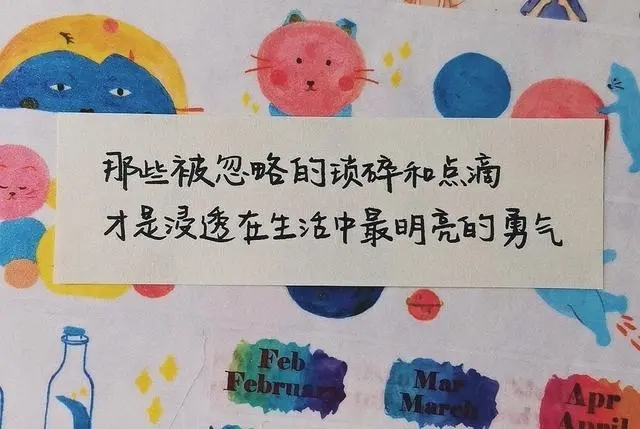 那些被忽略的琐碎和点滴
才是浸透在生活中最明亮的勇气
Feb
February
Mar
March
Apr
April